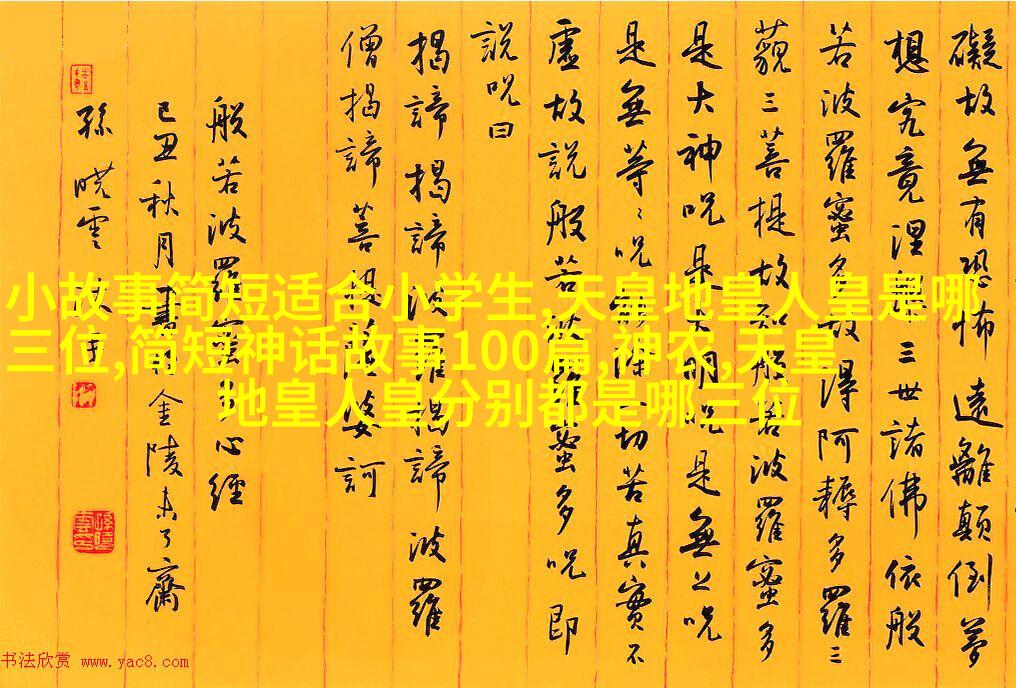 礙故無有恐怖遠離顛倒夢
想究竟涅槃三世諸佛依般
若波羅蜜多故得阿耨多羅三
藐三菩提故知般若波羅蜜多
是大神呪是大明呪是無上呪
是無等〻呪能除一切苦真實不
虛故說般若波羅蜜多呪即
說呪曰
揭諦揭諦波羅揭諦波羅
僧揭諦菩提薩婆訶
般若波羅蜜多心經
己丑秋月書於金陵未了齋
孫曉雲
小故事简短适合小学生,天皇地皇人皇是哪
三位,简短神话故事100篇,神农,天皇
地皇人皇分别都是哪三位
书法欣赏 www.yac8.com